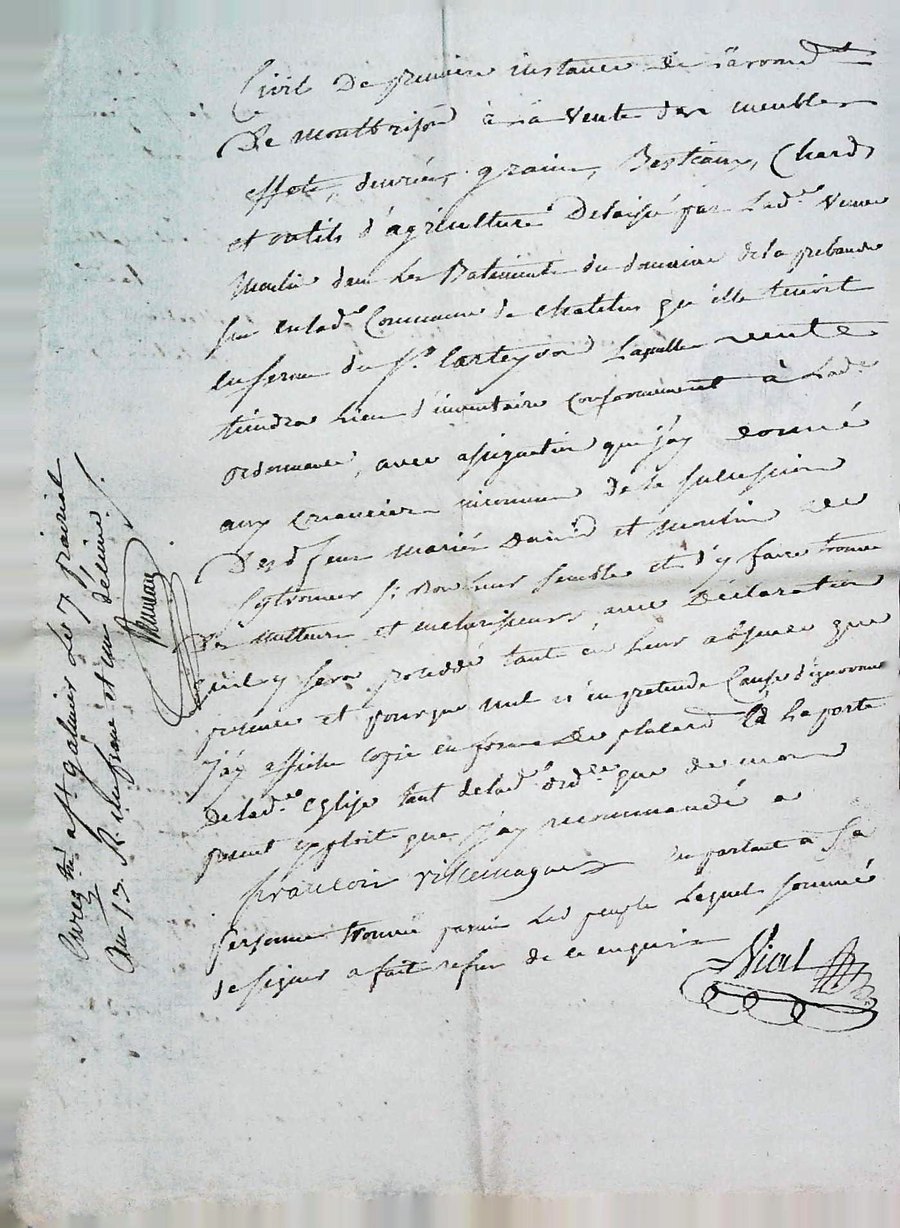 Civil De premiere instance de l'arrond.t
De montbrison à la Vente des meubles
effets, denrées, grains, Bestiaux, Chards
et outils d'agriculture Delaissé par Lad.e Veuve
Moulin dans Les Batiments du domaine de la prebande
sur en lad.e Commune de chatelus qu'elle tenoit
en ferme du S.r Carteyron Laquelle vente
tiendra Lieu d'inventaire Conformement à Lad.e
ordonnance, avec assignation que j'ay donné
aux creanciers inconnus de la succession
Desd feux mariés David et Moulin de
s'y trouver si Bon Leur semble et d'y faire trouver
Des metteurs et encherisseurs, avec Déclaration
qu'il y sera procédé tant en Leur absence que
presence et pour que nul n'en pretende Cause d'ignorance
J'ay affiché copie en forme de placard à La porte
De lad.e Eglise tant de lad.e ord.ce que de mon
present exploit que j'ay recommandé a
françois villemagne en parlant à sa
personne trouvée parmi Led peuple Lequel sommé
de signer a fait refus de ce enquis
Nial
Enreg.tré a S.t galmier Le 7 prairial
an 13. R. un franc et un décime